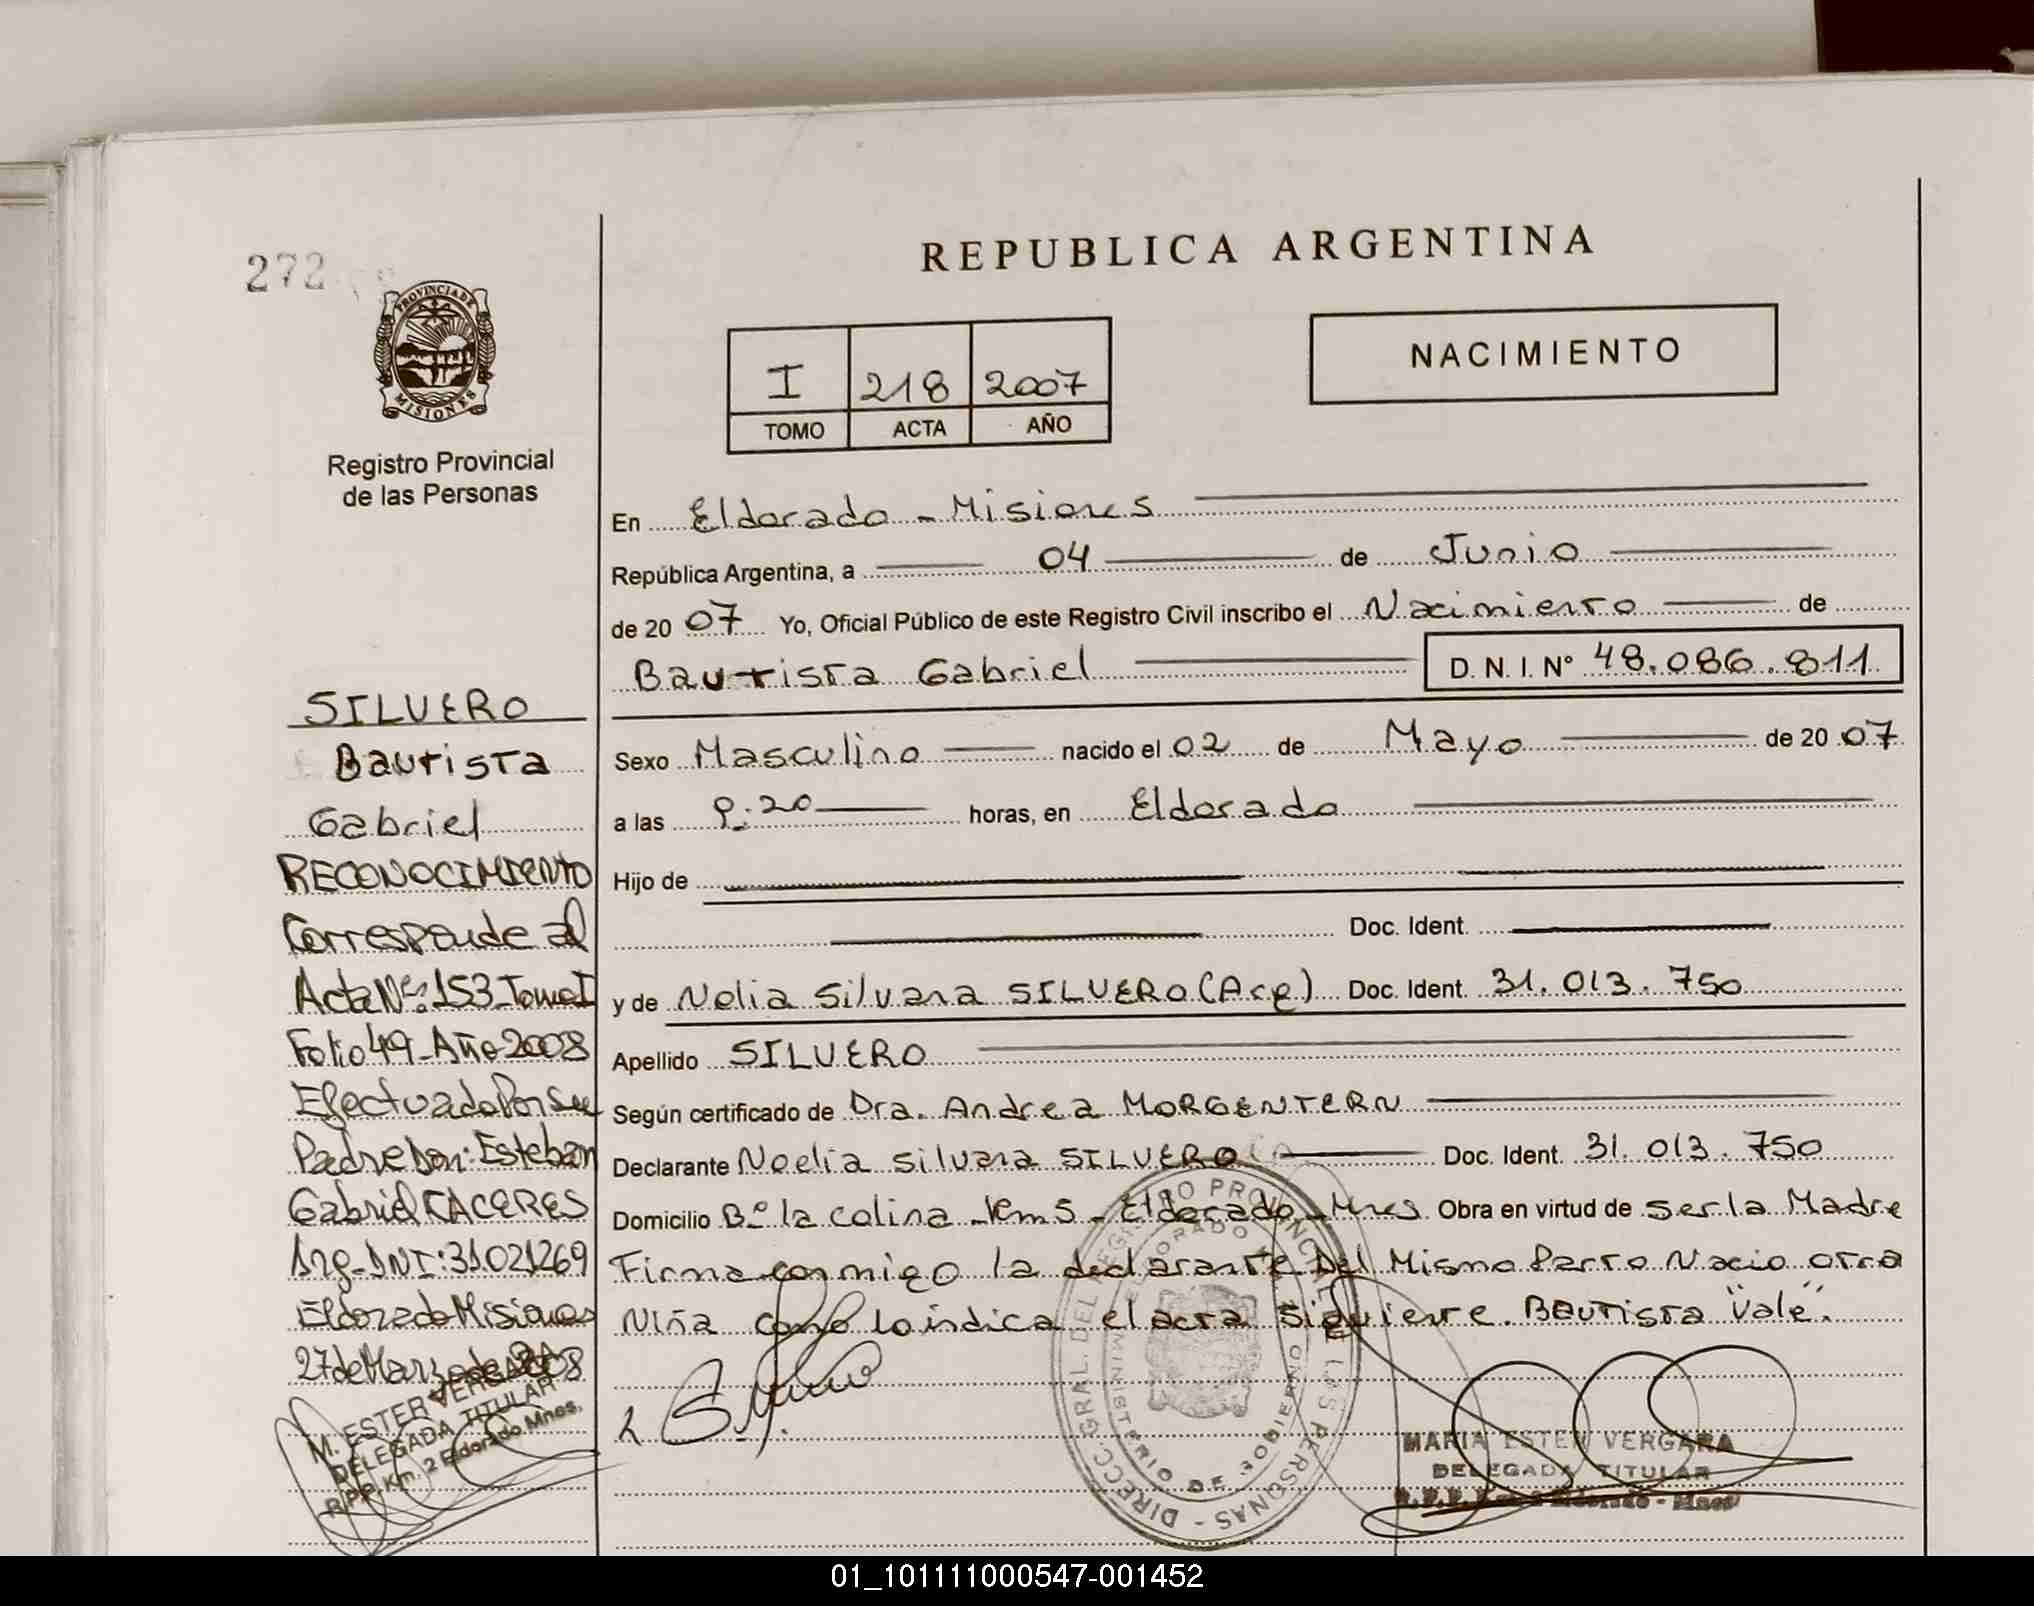 272
PROVINCIA DE
MISIONES
Registro Provincial
de las Personas
SILVERO
Bautista
Gabriel
RECONOCIMIENTO
Corresponde al
Acta Nº: 153-Tomo I
Folio 49-Año 2008
Efectuado Por su
Padre Don: Esteban
Gabriel CACERES
Arg-DNI: 31.021269
Eldorado Misiones
27 de Marzo de 2008
M. ESTER VERGARA
DELEGADA TITULAR
R.P.P. Km. 2 Eldorado Mnes.
REPUBLICA ARGENTINA
I 218 2007
TOMO ACTA AÑO
NACIMIENTO
En Eldorado - Misiones
República Argentina, a 04 de Junio
de 20 07 Yo, Oficial Público de este Registro Civil inscribo el Nacimiento de
Bautista Gabriel D.N.I. Nº 48.086.811
Sexo Masculino nacido el 02 de Mayo de 20 07
a las 9:20 horas, en Eldorado
Hijo de
Doc. Ident.
y de Nelia Silvana SILVERO (Arg) Doc. Ident. 31.013.750
Apellido SILVERO
Según certificado de Dra. Andrea MORGENTERN
Declarante Noelia Silvana SILVERO Doc. Ident. 31.013.750
Domicilio Bº la colina - Km 5 - Eldorado - Mnes Obra en virtud de ser la Madre
Firma conmigo la declarante Del Mismo Parto Nacio otra
Niña como lo indica el acta siguiente. Bautista "Vale".
DIRECC. GRAL. DEL REGISTRO PROVINCIAL DE LAS PERSONAS
MINISTERIO DE GOBIERNO
ELDORADO
MARIA ESTER VERGARA
DELEGADA TITULAR
R.P.P. Km. 2 Eldorado - Mnes
01_101111000547-001452